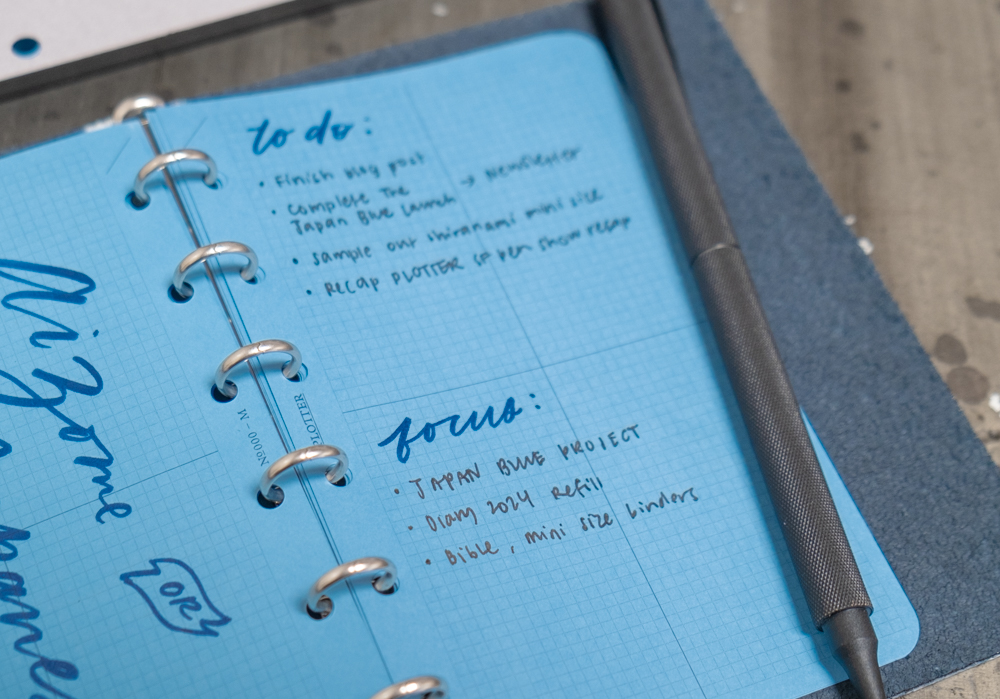 to do:
• Finish blog post
• Complete the
Japan Blue Launch
→ Newsletter
• sample our shiranami mini size
• Recap PLOTTER SF pen show recap
focus:
• JAPAN BLUE PROJECT
• Diary 2024 Refill
• Bible, mini size binders
Nº000 – M
PLOTTER
Aizome
OR